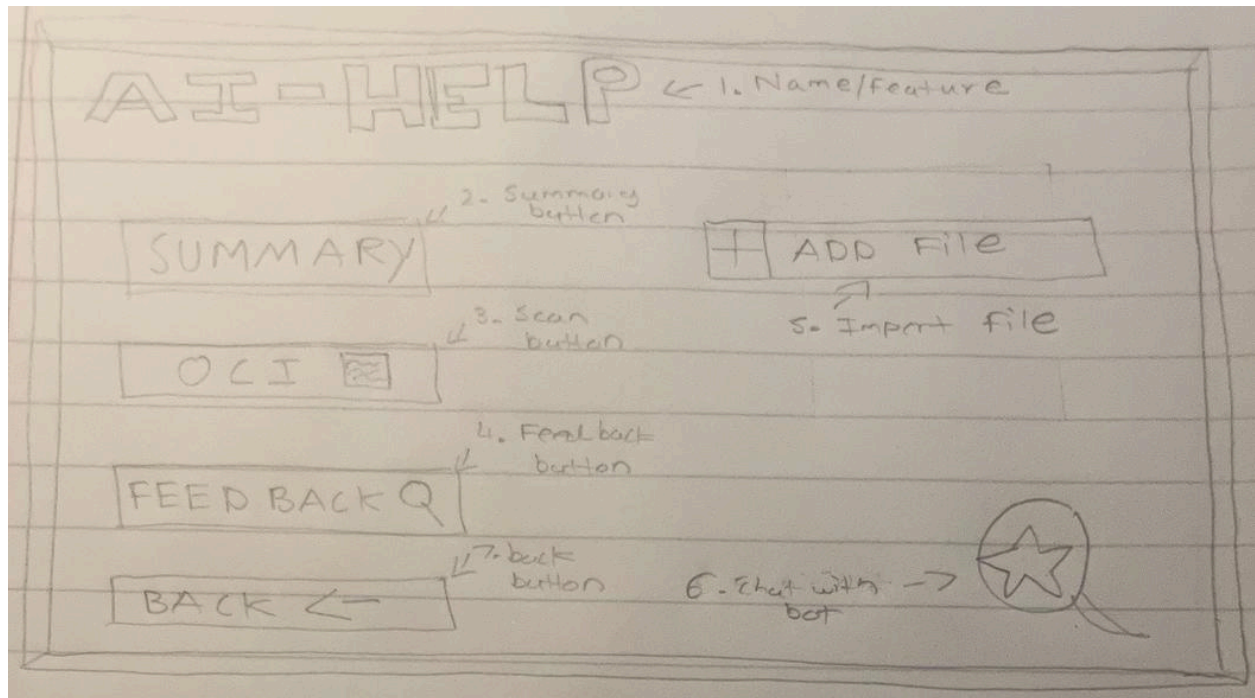 AI-HELP ← 1. Name/Feature
2- Summary
button
SUMMARY
+ ADD File
5- Import file
3- Scan
button
OCI
4. Feedback
button
FEEDBACK
7- back
button
BACK ←
6 - Chat with →
bot